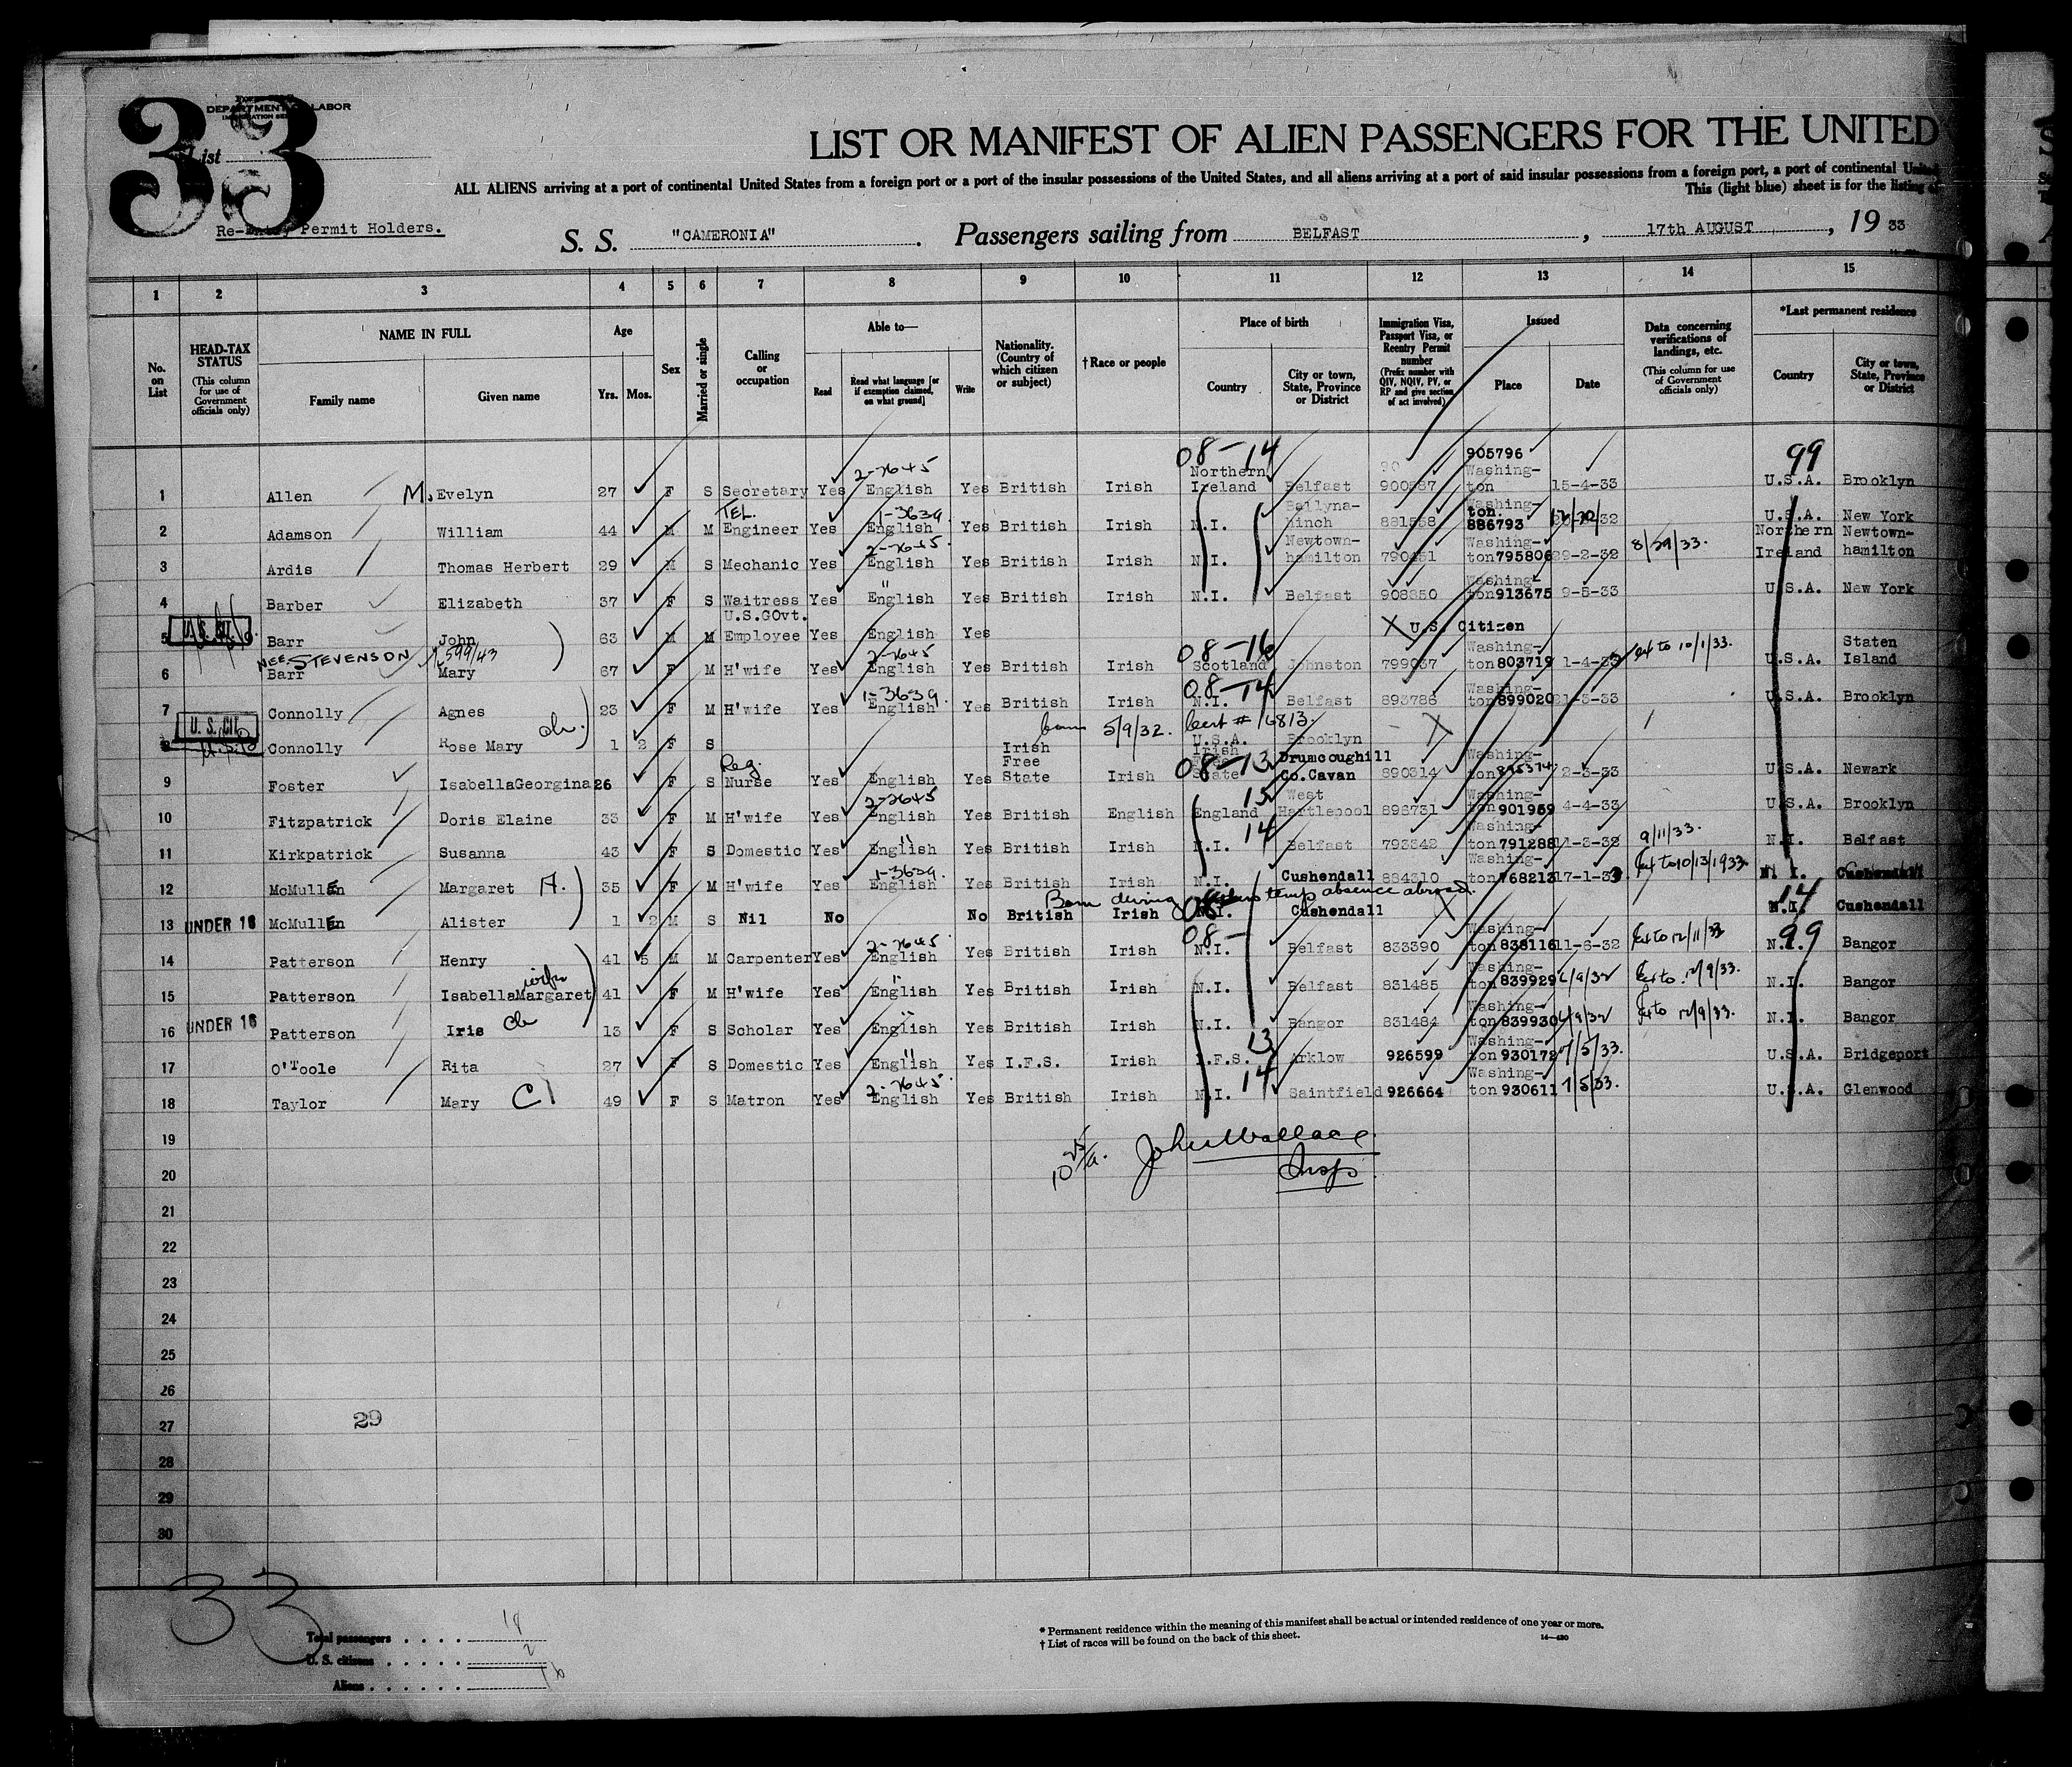 33
DEPARTMENT OF LABOR
IMMIGRATION SERVICE
List
LIST OR MANIFEST OF ALIEN PASSENGERS FOR THE UNITED
ALL ALIENS arriving at a port of continental United States from a foreign port or a port of the insular possessions of the United States, and all aliens arriving at a port of said insular possessions from a foreign port, a port of continental United
This (light blue) sheet is for the listing of
Re-Entry Permit Holders.
S. S. "CAMERONIA". Passengers sailing from BELFAST, 17th AUGUST, 19 33
1 2 3 4 5 6 7 8 9 10 11 12 13 14 15
No. on List
HEAD-TAX STATUS (This column for use of Government officials only)
NAME IN FULL Family name Given name
Age Yrs. Mos.
Sex
Married or single
Calling or occupation
Able to— Read Read what language [or if exemption claimed, on what ground] Write
Nationality. (Country of which citizen or subject)
†Race or people
Place of birth Country City or town, State, Province or District
Immigration Visa, Passport Visa, or Reentry Permit number (Prefix number with QIV, NQIV, PV, or RP and give section of act involved)
Issued Place Date
Data concerning verifications of landings, etc. (This column for use of Government officials only)
*Last permanent residence Country City or town, State, Province or District
08-14 905796 99
2-7645 Northern Washing-
1 Allen M. Evelyn 27 F S Secretary Yes English Yes British Irish Ireland Belfast 900587 ton 15-4-33 U.S.A. Brooklyn
TEL. 1-3639 Ballyna- Washing-
2 Adamson William 44 M M Engineer Yes English Yes British Irish N.I. hinch 881558 ton. 886793 U.S.A. New York
2-7645 Newtown- Washing- 8/29/33. Northern Newtown-
3 Ardis Thomas Herbert 29 M S Mechanic Yes English Yes British Irish N.I. hamilton 790451 ton 795806 29-2-32 Ireland hamilton
" Washing-
4 Barber Elizabeth 37 F S Waitress Yes English Yes British Irish N.I. Belfast 908850 ton 913675 9-5-33 U.S.A. New York
U.S. CIT. U.S.GOvt.
5 Barr John 63 M M Employee Yes English Yes X U.S. Citizen
NEE STEVENSON 599/43 2-7645 08-16 Washing- Ext to 10/1/33. Staten
6 Barr Mary 67 F M H'wife Yes English Yes British Irish Scotland Johnston 799037 ton 803719 1-4-33 U.S.A. Island
1-3639. 08-14 Washing-
7 Connolly Agnes 23 F M H'wife Yes English Yes British Irish N.I. Belfast 893786 ton 899020 21-3-33 U.S.A. Brooklyn
U. S. CIT. ch. born 5/9/32. Cert # 16813.
8 Connolly Rose Mary 1 2 F S U.S.A. Brooklyn
Reg. Irish Free 08-13 Irish Free Drumcoughill Washing-
9 Foster IsabellaGeorgina 26 F S Nurse Yes English Yes State Irish State Co.Cavan 890314 ton 2-3-33 U.S.A. Newark
2-7645 15 West Washing-
10 Fitzpatrick Doris Elaine 33 F M H'wife Yes English Yes British English England Hartlepool 898731 ton 901969 4-4-33 U.S.A. Brooklyn
" 14 Washing- 9/11/33.
11 Kirkpatrick Susanna 43 F S Domestic Yes English Yes British Irish N.I. Belfast 793342 ton 791288 11-3-32 N.I. Belfast
1-3639. Washing- Ext to 10/13/1933.
12 McMullEn Margaret A. 35 F M H'wife Yes English Yes British Irish N.I. Cushendall 884310 ton 768213 17-1-33 N.I. Cushendall
Born during temp absence abroad. 14
13 UNDER 16 McMullEn Alister 1 2 M S Nil No No British Irish N.I. Cushendall N.I. Cushendall
2-7645 08- Washing- Ext to 12/11/33 99
14 Patterson Henry 41 5 M M Carpenter Yes English Yes British Irish N.I. Belfast 833390 ton 838116 11-6-32 N.I. Bangor
wife " Washing- Ext to 12/9/33.
15 Patterson IsabellaMargaret 41 F M H'wife Yes English Yes British Irish N.I. Belfast 831485 ton 839929 6/9/32 N.I. Bangor
UNDER 16 ch " Washing- Ext to 12/9/33.
16 Patterson Iris 13 F S Scholar Yes English Yes British Irish N.I. Bangor 831484 ton 839930 6/9/32 N.I. Bangor
" 13 Washing-
17 O'Toole Rita 27 F S Domestic Yes English Yes I.F.S. Irish I.F.S. Arklow 926599 ton 930172 7/5/33. U.S.A. Bridgeport
2-7645. 14 Washing-
18 Taylor Mary C1 49 F S Matron Yes English Yes British Irish N.I. Saintfield 926664 ton 930611 7/5/33. U.S.A. Glenwood
19
John Wallace
20 Insp
21
22
23
24
25
26
27 29
28
29
30
33
Total passengers . . . . 18
U. S. citizens . . . . . 2
Aliens . . . . . . 16
* Permanent residence within the meaning of this manifest shall be actual or intended residence of one year or more.
† List of races will be found on the back of this sheet.
14—430